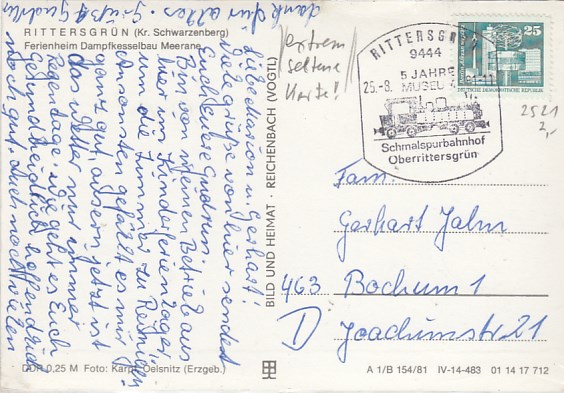 RITTERSGRÜN (Kr. Schwarzenberg)
Ferienheim Dampfkesselbau Meerane
Liebe Marion u. Gerhart!
Viele Grüße von hier sendet
Euch Eure Gudrun.
Bin von meinen Betrieb aus
hier im Kinderferienlager
um die Zimmer zu Reinigen
Ansonsten gefällt es mir
ganz gut, aussern jetzt ist
das Wetter nur immer
Regentage. Wie geht es Euch
Gesundheitlich hoffendlich
noch gut. Auch noch vielen
dank für alles. Grüßt Gudrun
extrem
seltene
Karte!
RITTERSGRÜN
9444
5 JAHRE
MUSEU
25.-8.
Schmalspurbahnhof
Oberrittersgrün
25
DEUTSCHE DEMOKRATISCHE REPUBLIK
2521
2,-
BILD UND HEIMAT · REICHENBACH (VOGTL)
Fam.
Gerhart Jahn
463 Bochum 1
D Joachimstr 21
DDR 0,25 M Foto: Karpf, Oelsnitz (Erzgeb.)
A 1/B 154/81 IV-14-483 01 14 17 712